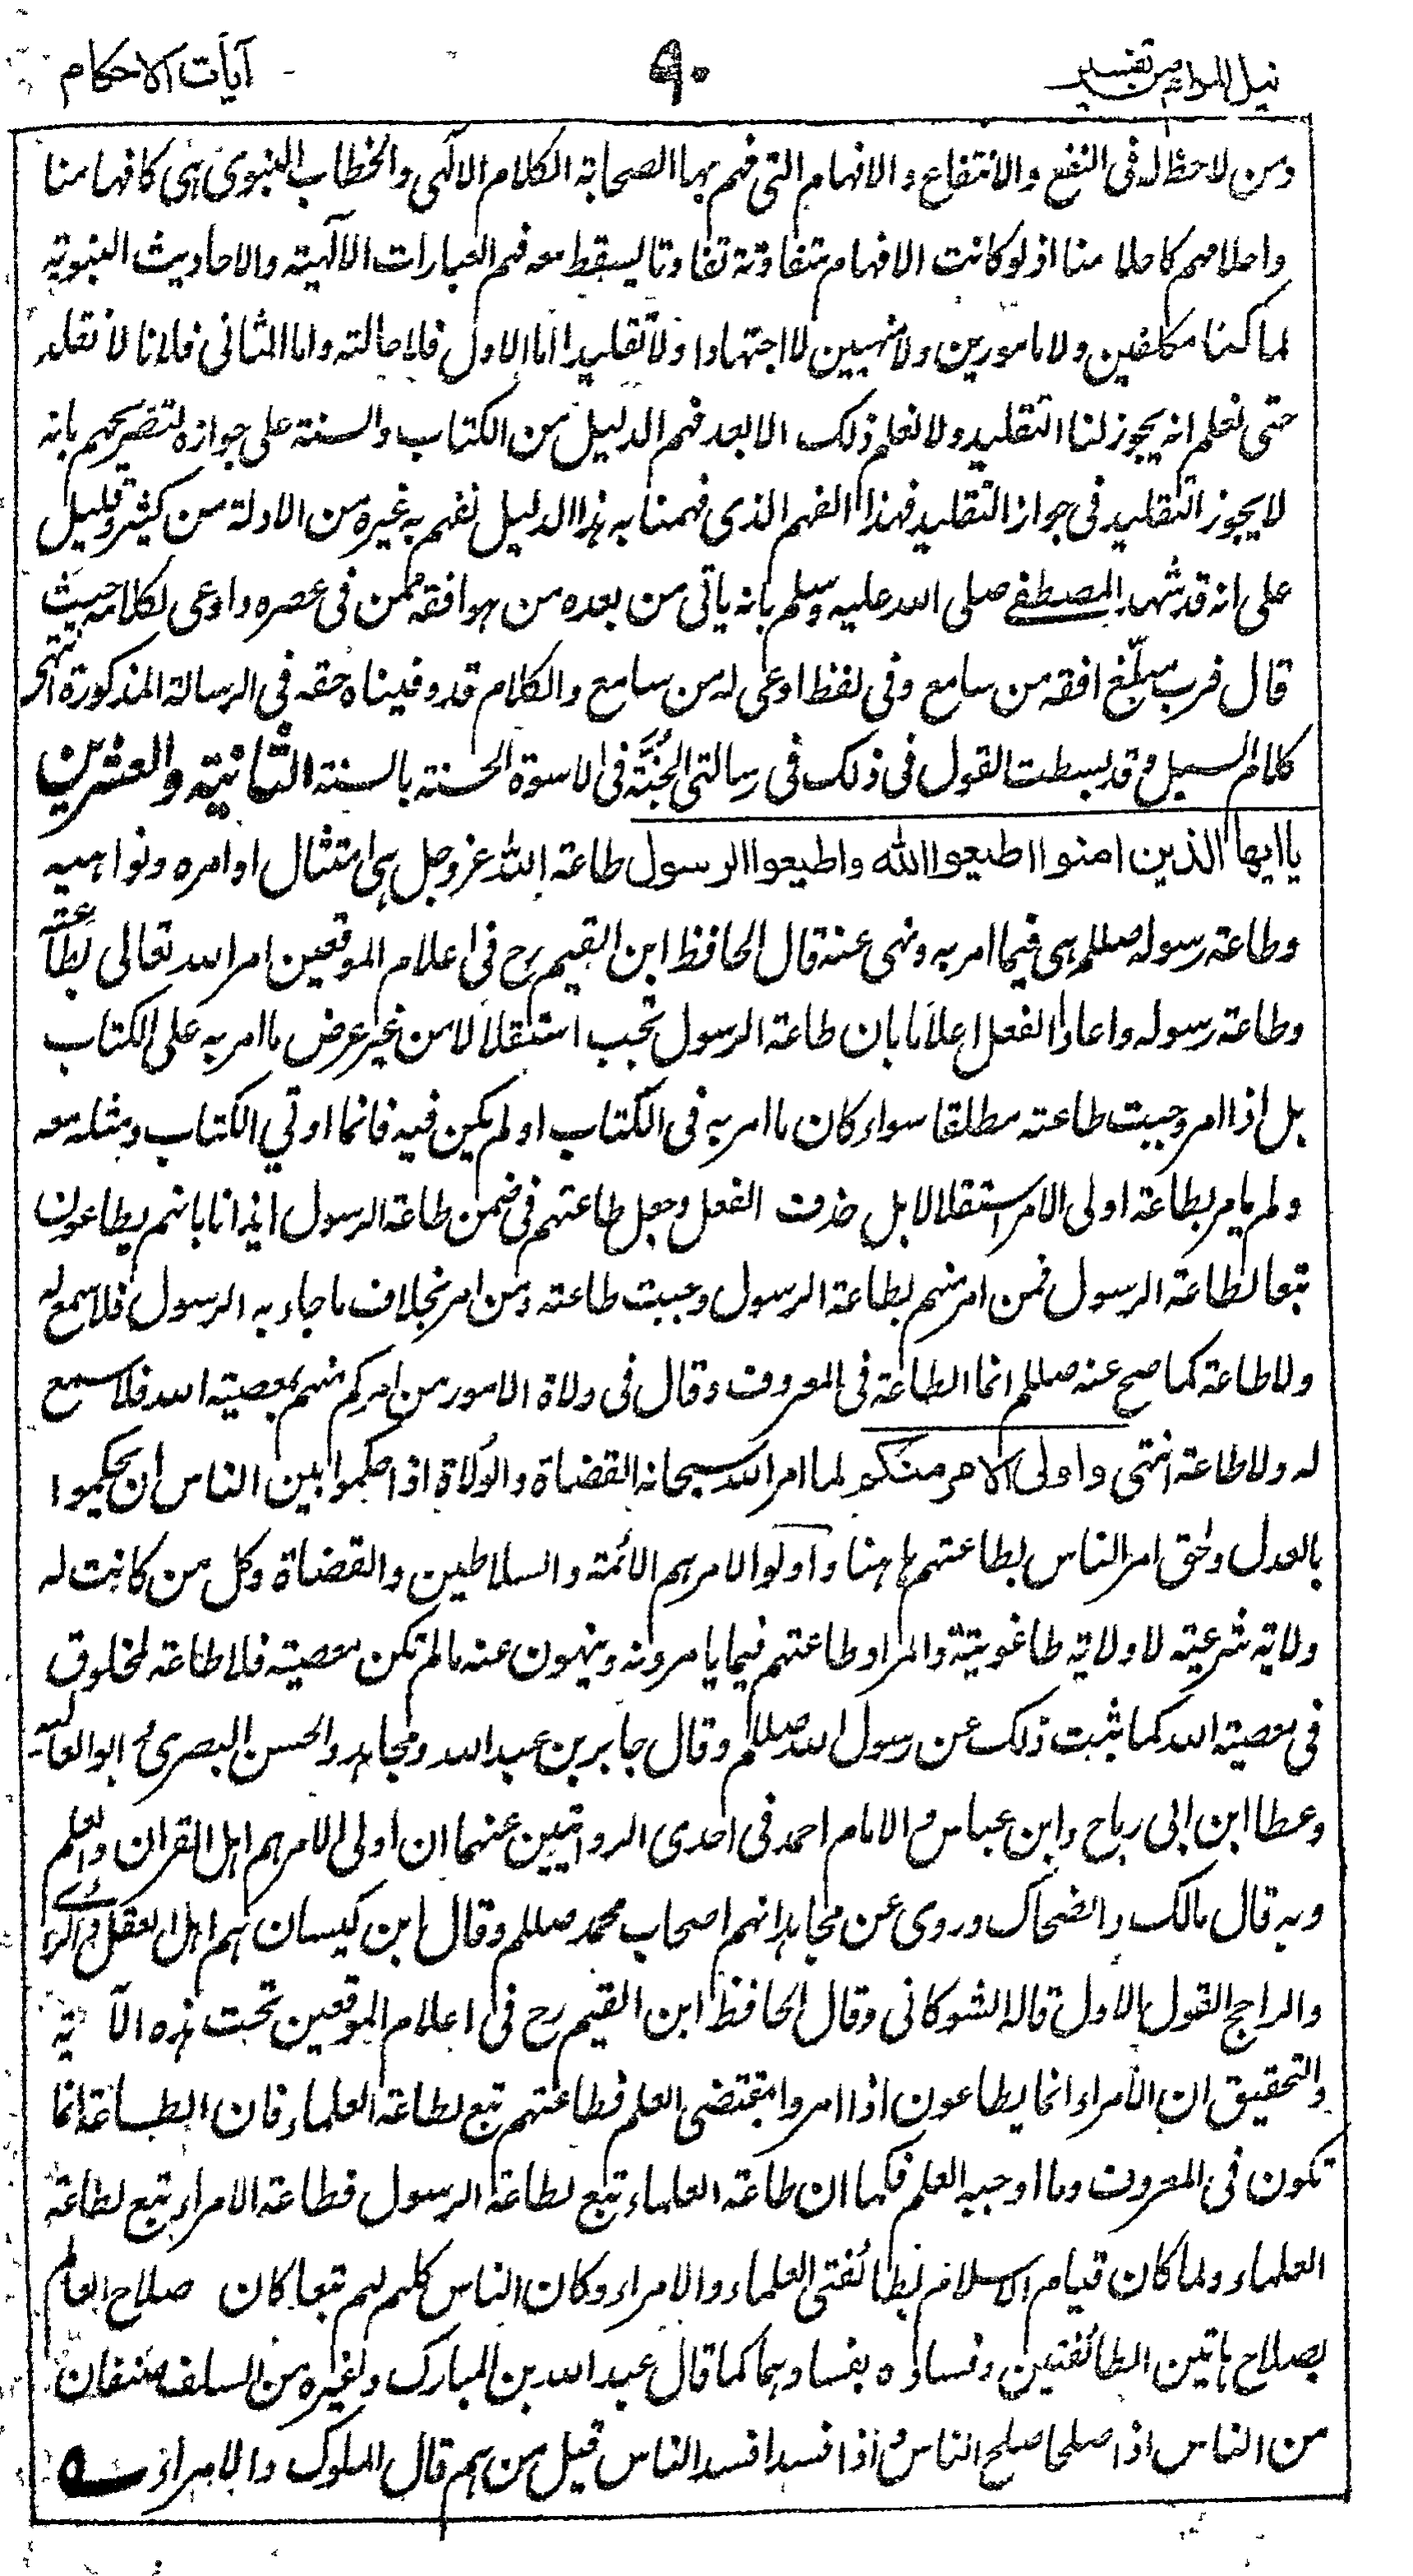 نيل المرام من تفسير ٩٠ آيات الاحكام
ومن لاحظ له فى النفع والانتفاع والافهام التى فهم بها الصحابة الكلام الالهى والخطاب النبوى هى كافهامنا
واحلامهم كاحلامنا اذ لو كانت الافهام متفاوتة تفاوتا يسقط معه فهم العبارات الالهية والاحاديث النبوية
لما كنا مكلفين ولا مامورين ولا منهيين لا اجتهادا ولا تقليدا اما الاول فلاحالته واما الثانى فلانا لا نقلد
حتى نعلم انه يجوز لنا التقليد ولا نعلم ذلك الا بعد فهم الدليل من الكتاب والسنة على جوازه لتصريحهم بانه
لا يجوز التقليد فى جواز التقليد فهذا الفهم الذى فهمنا به هذا الدليل نفهم به غيره من الادلة من كثير وقليل
على انه قد شهد المصطفے صلى الله عليه وسلم بانه ياتى من بعده من هو افقه ممن فى عصره واوعى لكلامه حيث
قال فرب مبلّغ افقه من سامع وفى لفظ اوعى له من سامع والكلام قد وفيناه حقه فى الرسالة المذكورة انتهى
كلام السيل وقد بسطت القول فى ذلك فى رسالتى الجُنَّة فى الاسوة الحسنة بالسنة الثانية والعشرين
يا ايها الذين امنوا اطيعوا الله واطيعوا الرسول طاعة الله عز وجل هى امتثال اوامره ونواهيه
وطاعة رسوله صللم هى فيما امر به ونهى عنه قال الحافظ ابن القيم رح فى اعلام الموقعين امر الله تعالى بطاعته
وطاعة رسوله واعاد الفعل اعلاما بان طاعة الرسول تجب استقلالا من غير عرض ما امر به على الكتاب
بل اذا امر وجبت طاعته مطلقا سواء كان ما امر به فى الكتاب او لم يكن فيه فانما اوتي الكتاب ومثله معه
ولم يامر بطاعة اولى الامر استقلالا بل حذف الفعل وجعل طاعتهم فى ضمن طاعة الرسول ايذانا بانهم يطاعون
تبعا لطاعة الرسول فمن امر منهم بطاعة الرسول وجبت طاعته ومن امر بخلاف ما جاء به الرسول فلا سمع له
ولا طاعة كما صح عنه صللم انما الطاعة فى المعروف وقال فى ولاة الامور من امركم منهم بمعصية الله فلا سمع
له ولا طاعة انتهى واولى الامر منكم لما امر الله سبحانه القضاة والوُلاة اذا حكموا بين الناس ان يحكموا
بالعدل والحق امر الناس بطاعتهم ها هنا واولو الامر هم الائمة والسلاطين والقضاة وكل من كانت له
ولاية شرعية لا ولاية طاغوتية والمراد طاعتهم فيما يامرون به وينهون عنه ما لم تكن معصية فلا طاعة لمخلوق
فى معصية الله كما ثبت ذلك عن رسول الله صللم وقال جابر بن عبد الله ومجاهد والحسن البصرى وابو العالية
وعطا ابن ابى رباح وابن عباس والامام احمد فى احدى الروايتين عنهما ان اولى الامر هم اهل القران والعلم
وبه قال مالك والضحاك وروى عن مجاهد انهم اصحاب محمد صللم وقال ابن كيسان هم اهل العقل والراے
والراجح القول الاول قاله الشوكانى وقال الحافظ ابن القيم رح فى اعلام الموقعين تحت هذه الآية
والتحقيق ان الامراء انما يطاعون اذا امروا بمقتضى العلم فطاعتهم تبع لطاعة العلماء فان الطاعة انما
تكون فى المعروف وما اوجبه العلم فكما ان طاعة العلماء تبع لطاعة الرسول فطاعة الامراء تبع لطاعة
العلماء ولما كان قيام الاسلام بطائفتى العلماء والامراء وكان الناس كلهم لهم تبعا كان صلاح العالم
بصلاح هاتين الطائفتين وفساده بفسادهما كما قال عبد الله بن المبارك وغيره من السلف صنفان
من الناس اذا صلحا صلح الناس واذا فسدا فسد الناس قيل من هم قال الملوك والامراء ؎